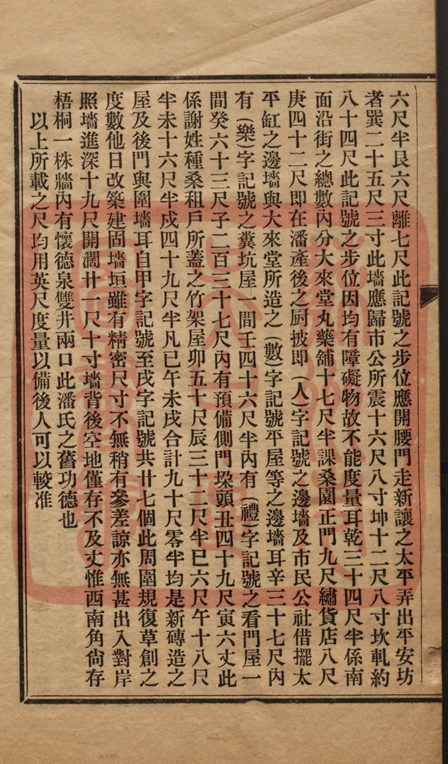 六尺半艮六尺離七尺此記號之步位應開腰門走新讓之太平弄出平安坊
者巽二十五尺三寸此墻應歸市公所震十六尺八寸坤十二尺八寸坎軋約
八十四尺此記號之步位因均有障礙物故不能度量耳乾三十四尺半係南
面沿街之總數內分大來堂丸藥舖十七尺半課桑園正門九尺繡貨店八尺
庚四十二尺即在潘產後之厨披即（人）字記號之邊墻及市民公社借擺太
平缸之邊墻與大來堂所造之（數）字記號平屋等之邊墻耳辛三十七尺內
有（樂）字記號之糞坑屋一間壬四十六尺半內有（禮）字記號之看門屋一
間癸六十三尺子二百三十七尺內有預備側門垜頭丑四十九尺寅六丈此
係謝姓種桑租戶所蓋之竹架屋卯五十尺辰三十二尺半巳六尺午十八尺
半未十六尺半戌四十九尺半凡巳午未戌合計九十尺零半均是新磚造之
屋及後門與圍墻耳自甲字記號至戌字記號共廿七個此周圍規復草創之
度數他日改築建固墻垣雖有精密尺寸不無稍有參差諒亦無甚出入對岸
照墻進深十九尺開濶廿一尺十寸墻背後空地僅存不及丈惟西南角尙存
梧桐一株牆內有懷德泉雙井兩口此潘氏之舊功德也
以上所載之尺均用英尺度量以備後人可以較准